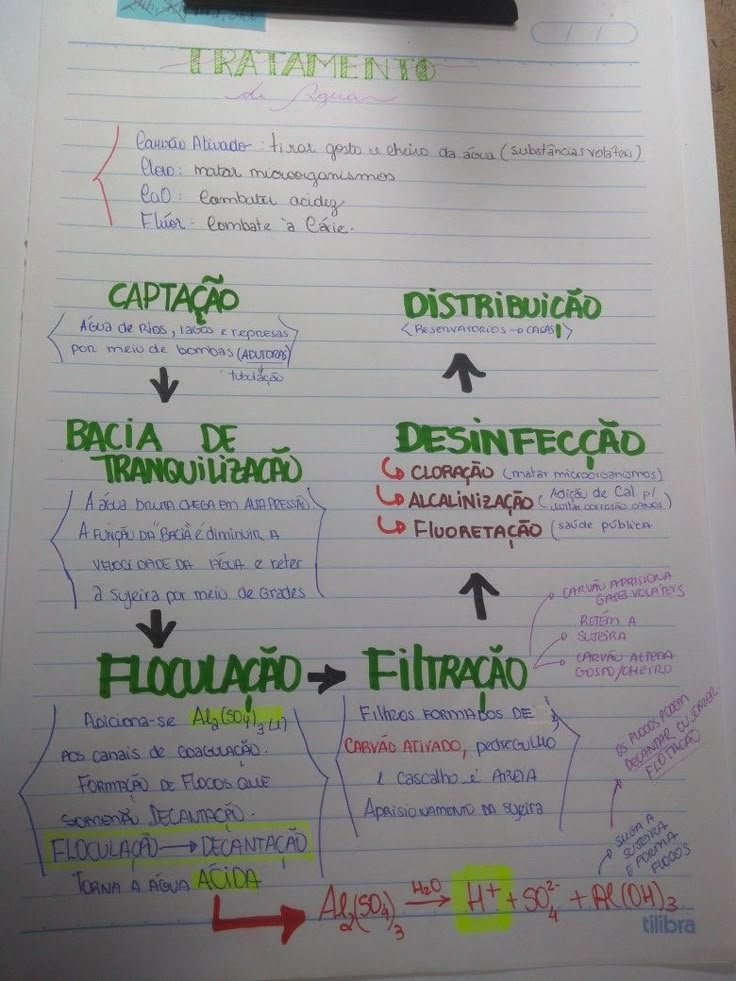 TRATAMENTO
de Água
Carvão Ativado: tirar gosto e cheiro da água (substâncias voláteis)
Cloro: matar microorganismos
CaO: Combater acidez
Flúor: Combate à Cárie.
CAPTAÇÃO
Água de Rios, lagos e represas
por meio de bombas (ADUTORAS)
tubulação
BACIA DE
TRANQUILIZAÇÃO
A ÁGUA BRUTA CHEGA EM ALTA PRESSÃO.
A FUNÇÃO DA "BACIA" É DIMINUIR A
VELOCIDADE DA ÁGUA e reter
a sujeira por meio de Grades
FLOCULAÇÃO
Adiciona-se Al2(SO4)3
AOS canais de COAGULAÇÃO.
FORMAÇÃO DE FLOCOS QUE
DECANTAÇÃO.
FLOCULAÇÃO → DECANTAÇÃO
TORNA A ÁGUA ÁCIDA
Al2(SO4)3 H2O→ H+ + SO4 2- + Al(OH)3
FILTRAÇÃO
FILTROS FORMADOS DE
CARVÃO ATIVADO, pedregulho
e cascalho e AREIA
Aprisionamento da sujeira
CARVÃO APRISIONA
GASES VOLÁTEIS
RETÉM A
SUJEIRA
CARVÃO ALTERA
GOSTO/CHEIRO
OS FLOCOS PODEM
DECANTAR OU SOFRER
FLOTAÇÃO
SUGA A
SUJEIRA
E FORMA
FLOCOS
DESINFECÇÃO
CLORAÇÃO (matar microorganismos)
ALCALINIZAÇÃO (Adição de Cal p/
evitar corrosão canos)
FLUORETAÇÃO (saúde pública
DISTRIBUIÇÃO
(RESERVATORIOS → CASAS)
tilibra